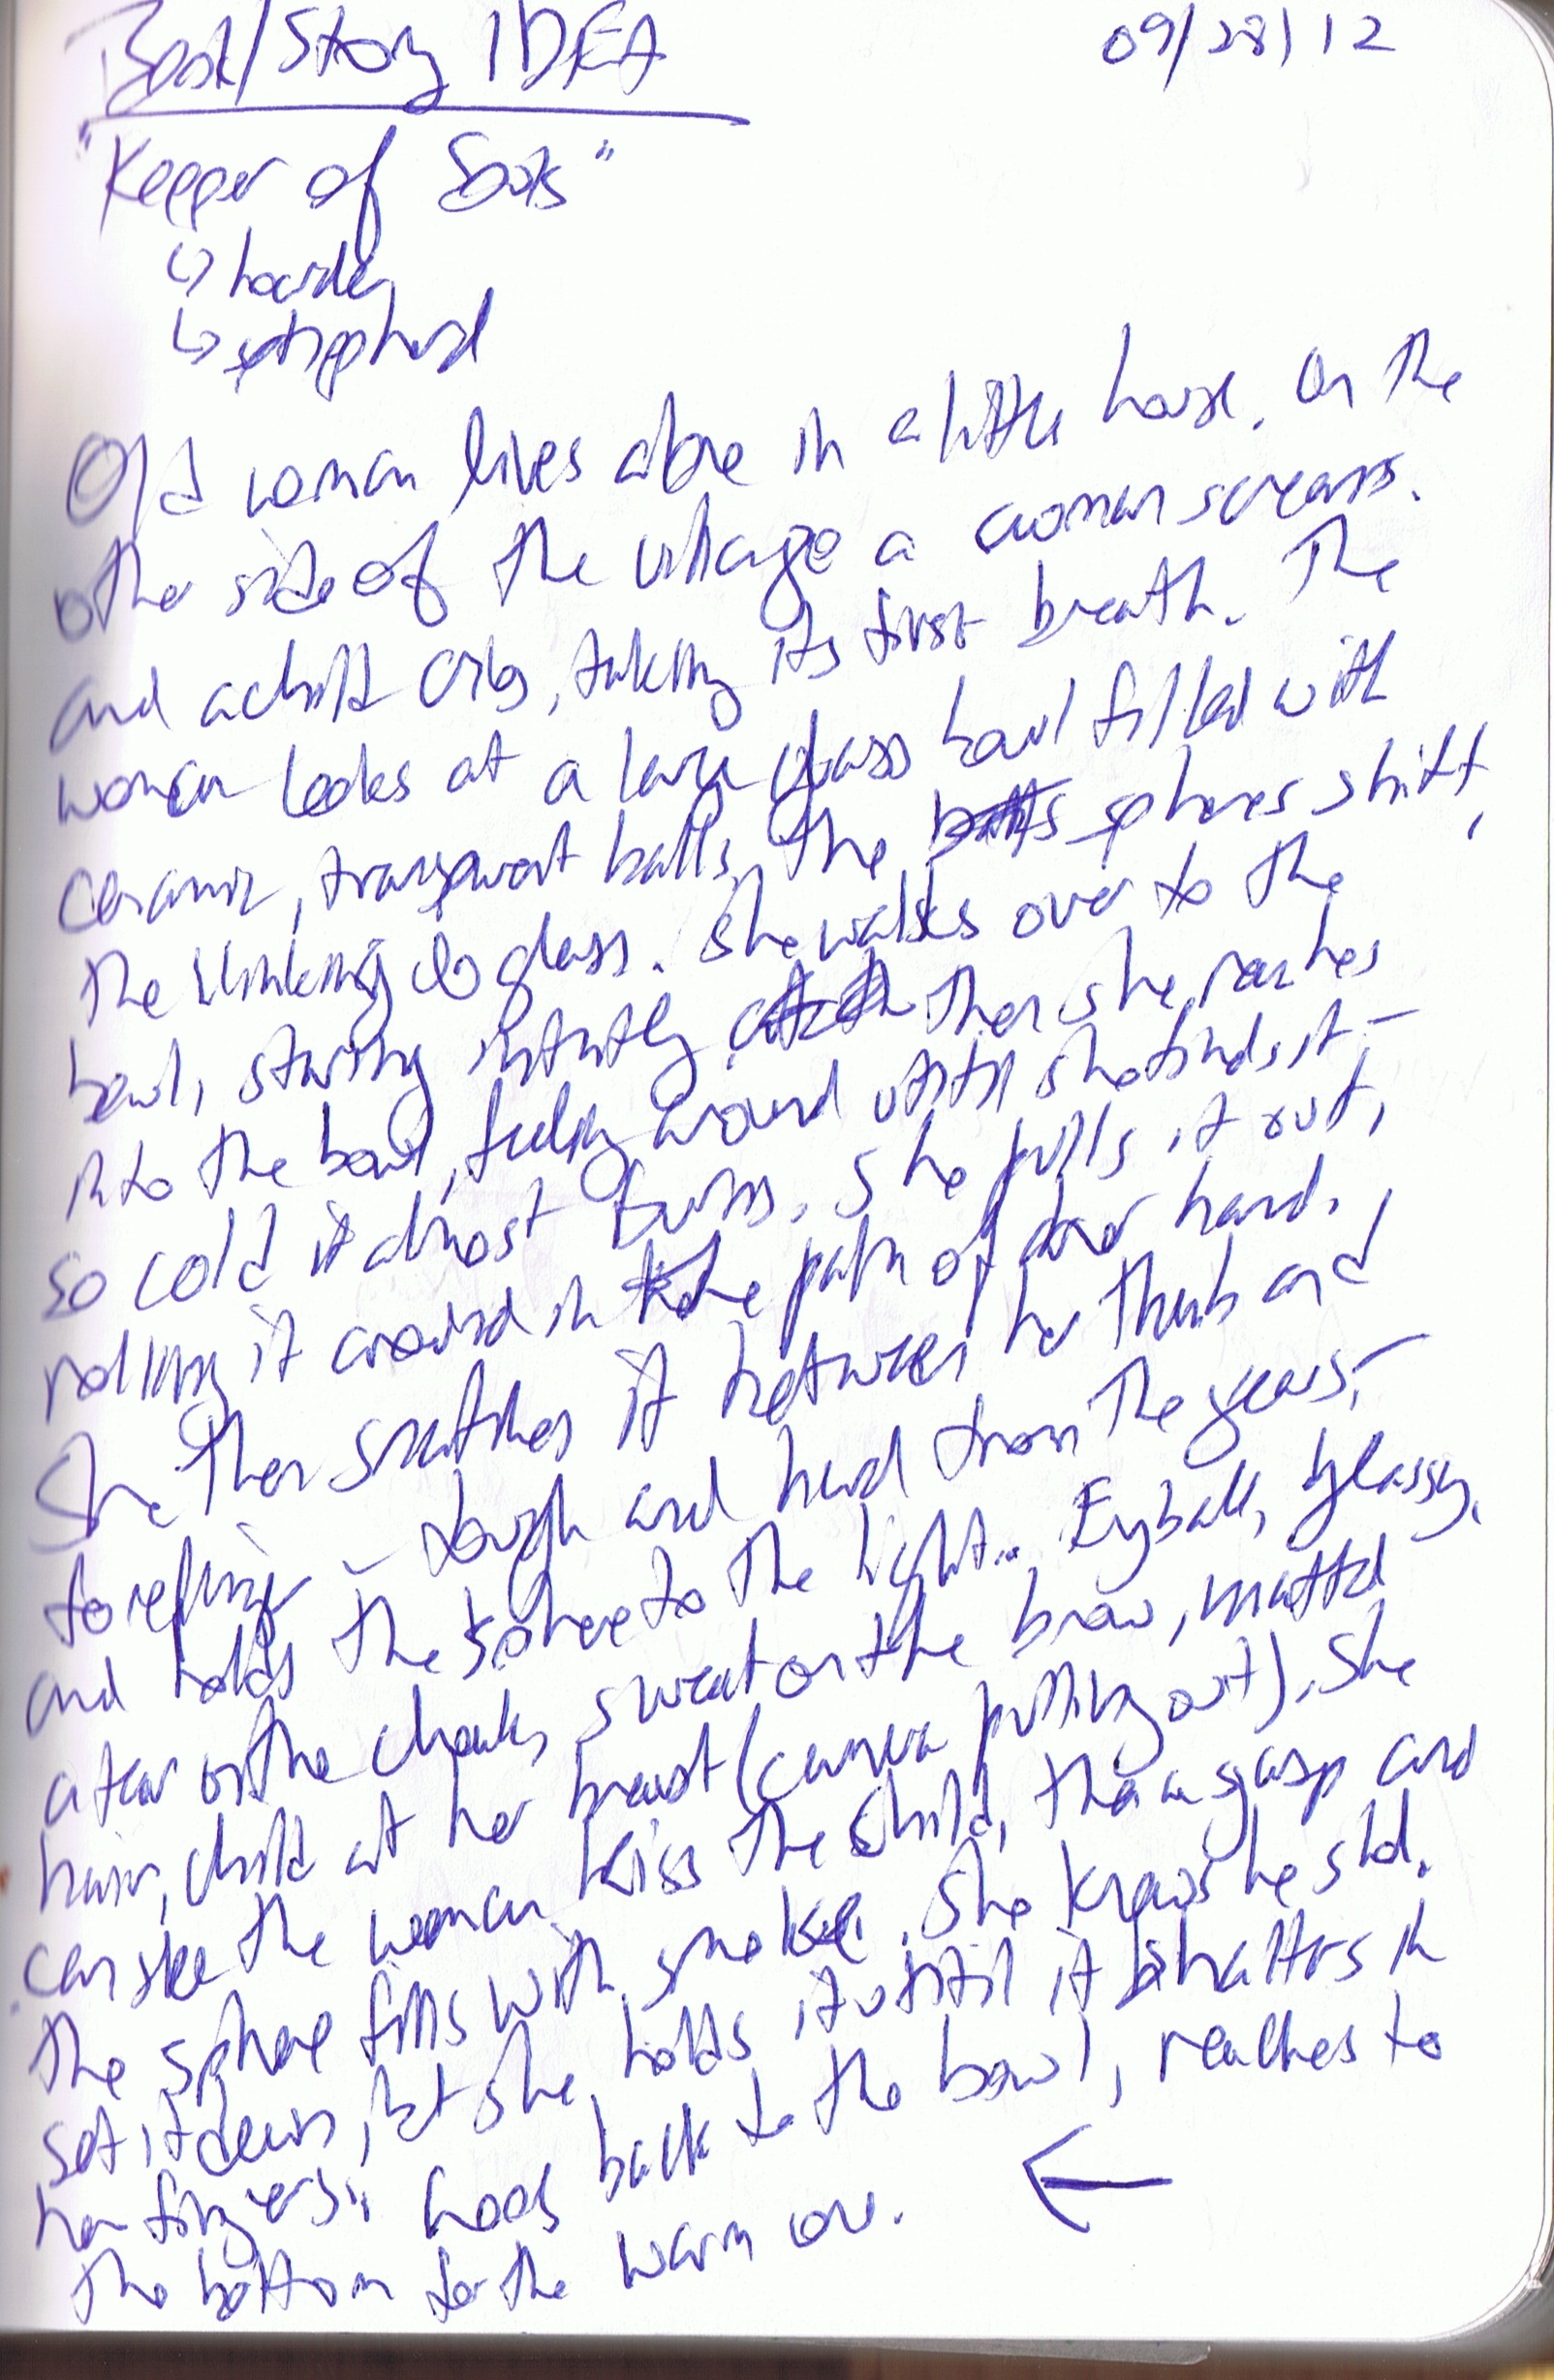 Book/Story IDEA 09/28/12
"Keeper of Souls"
↳ hoarding
↳
Old woman lives alone in a little house. On the
other side of the village a woman screams.
and a child cries, taking its first breath. The
woman looks at a large glass bowl filled with
ceramic, transparent balls. The balls spheres shift,
the clinking of glass. She walks over to the
bowl, staring intently then she reaches
into the bowl, feeling around until she finds it –
so cold it almost burns. She pulls it out,
rolling it around in the palm of her hand.
She then snatches it between her thumb and
forefinger – tough and hard from the years –
and holds the sphere to the light.. Eyeball, glassy,
a tear on the cheek, sweat on the brow, matted
hair, child at her breast (camera pulling out). She
can see the woman kiss the child, then a gasp and
the sphere fills with smoke. She knows he
set it down, but she holds it until it shatters in
her fingers. Goes back to the bowl, reaches to
the bottom for the warm one. ←